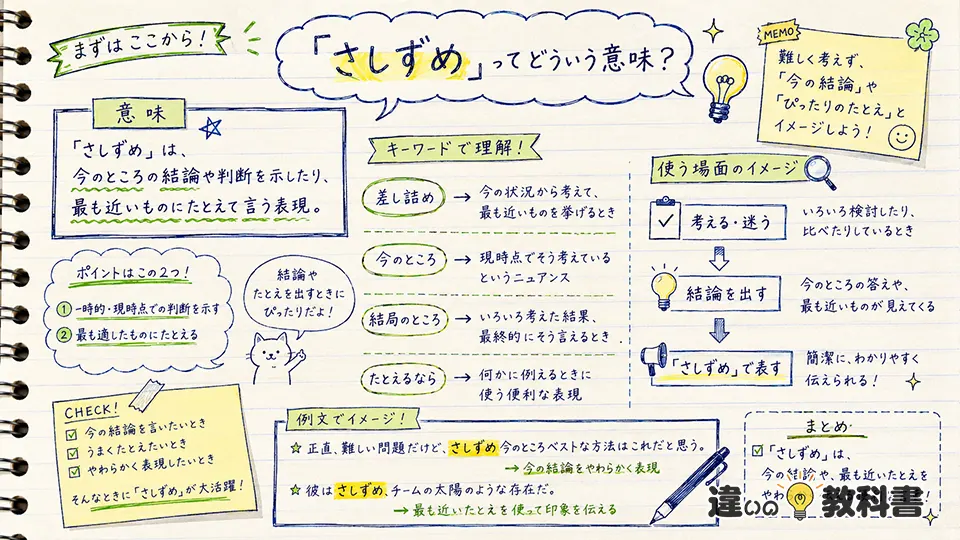 まずはここから！
「さしずめ」ってどういう意味？
MEMO
難しく考えず、
「今の結論」や
「ぴったりのたとえ」と
イメージしよう！
意味
「さしずめ」は、
今のところの結論や判断を示したり、
最も近いものにたとえて言う表現。
ポイントはこの2つ！
① 一時的・現時点での判断を示す
② 最も適したものにたとえる
結論や
たとえを出すときに
ぴったりだよ！
CHECK!
今の結論を言いたいとき
うまくたとえたいとき
やわらかく表現したいとき
そんなときに「さしずめ」が大活躍！
キーワードで理解！
差し詰め → 今の状況から考えて、
最も近いものを挙げるとき
今のところ → 現時点でそう考えている
というニュアンス
結局のところ → いろいろ考えた結果、
最終的にそう言えるとき
たとえるなら → 何かに例えるときに
使う便利な表現
使う場面のイメージ
考える・迷う
いろいろ検討したり、
比べたりしているとき
結論を出す
今のところの答えや、
最も近いものが見えてくる
「さしずめ」で表す
簡潔に、わかりやすく
伝えられる！
例文でイメージ！
☆ 正直、難しい問題だけど、さしずめ今のところベストな方法はこれだと思う。
→ 今の結論をやわらかく表現
☆ 彼はさしずめ、チームの太陽のような存在だ。
→ 最も近いたとえを使って印象を伝える
まとめ
「さしずめ」は、
今の結論や、最も近いたとえを
やわ
違いの教科書